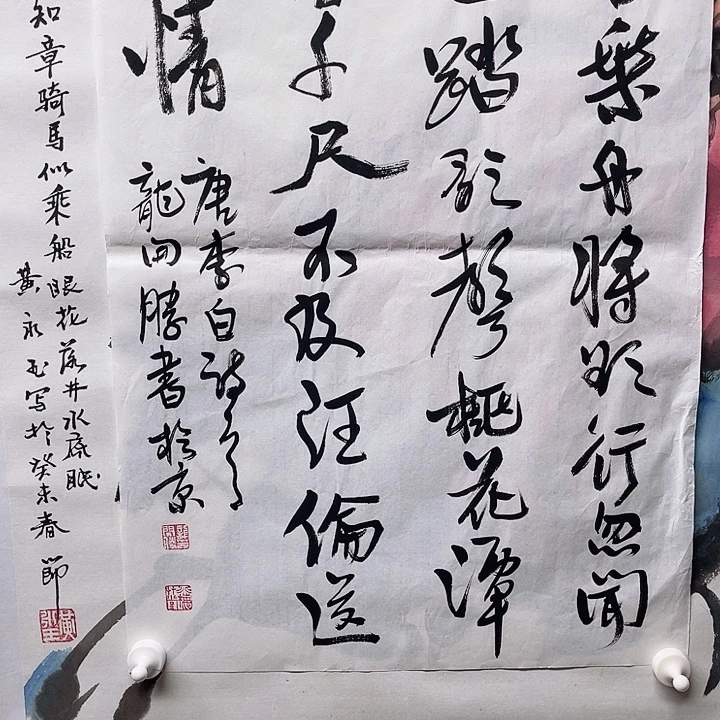 乘舟將欲行忽聞
踏歌聲桃花潭
千尺不及汪倫送
情
唐李白詩一首
龍開勝書於京
知章騎馬似乘船眼花落井水底眠
黃永玉写於癸未春節